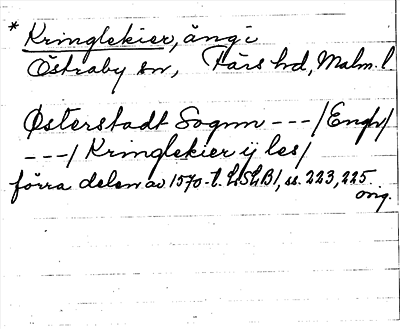 * Kringlekier, äng i
Östraby sn, Färs hd, Malm. l
Østerstadt Sognn --- /Engh/
---/ Kringlekier ij les/
förra delen av 1570-t. LSLB1, ss. 223, 225.
orig.